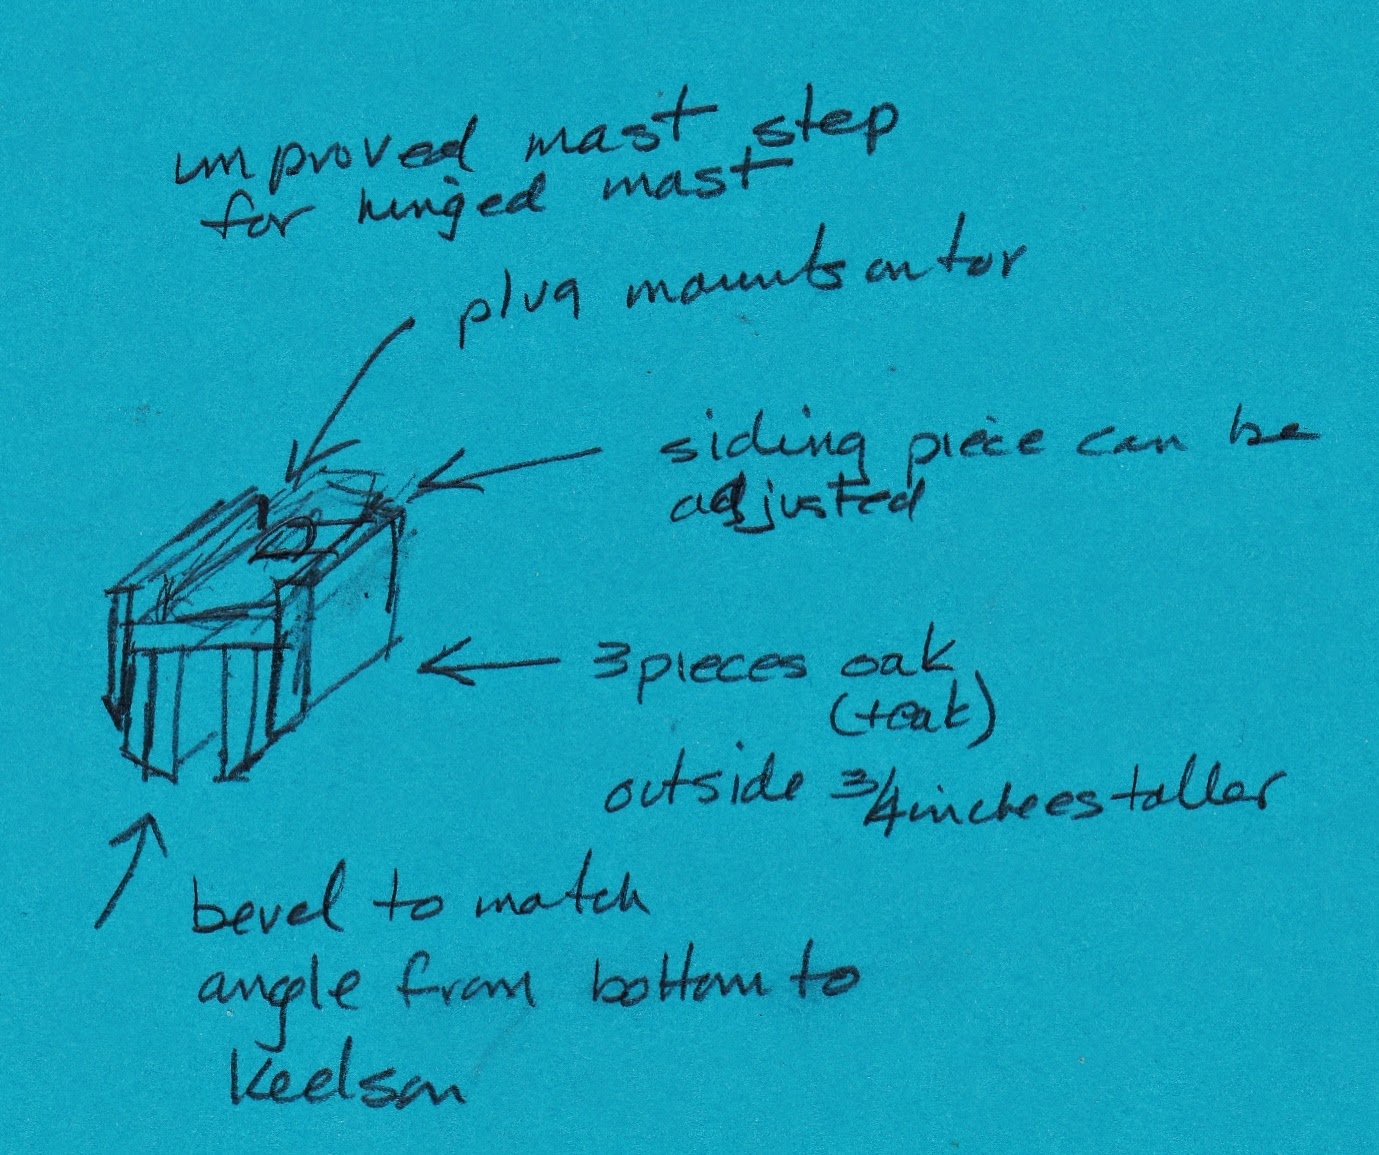 improved mast step
for hinged mast
plug mounts on top
siding piece can be
adjusted
3 pieces oak
(teak)
outside 3/4 inchees taller
bevel to match
angle from bottom to
Keelson